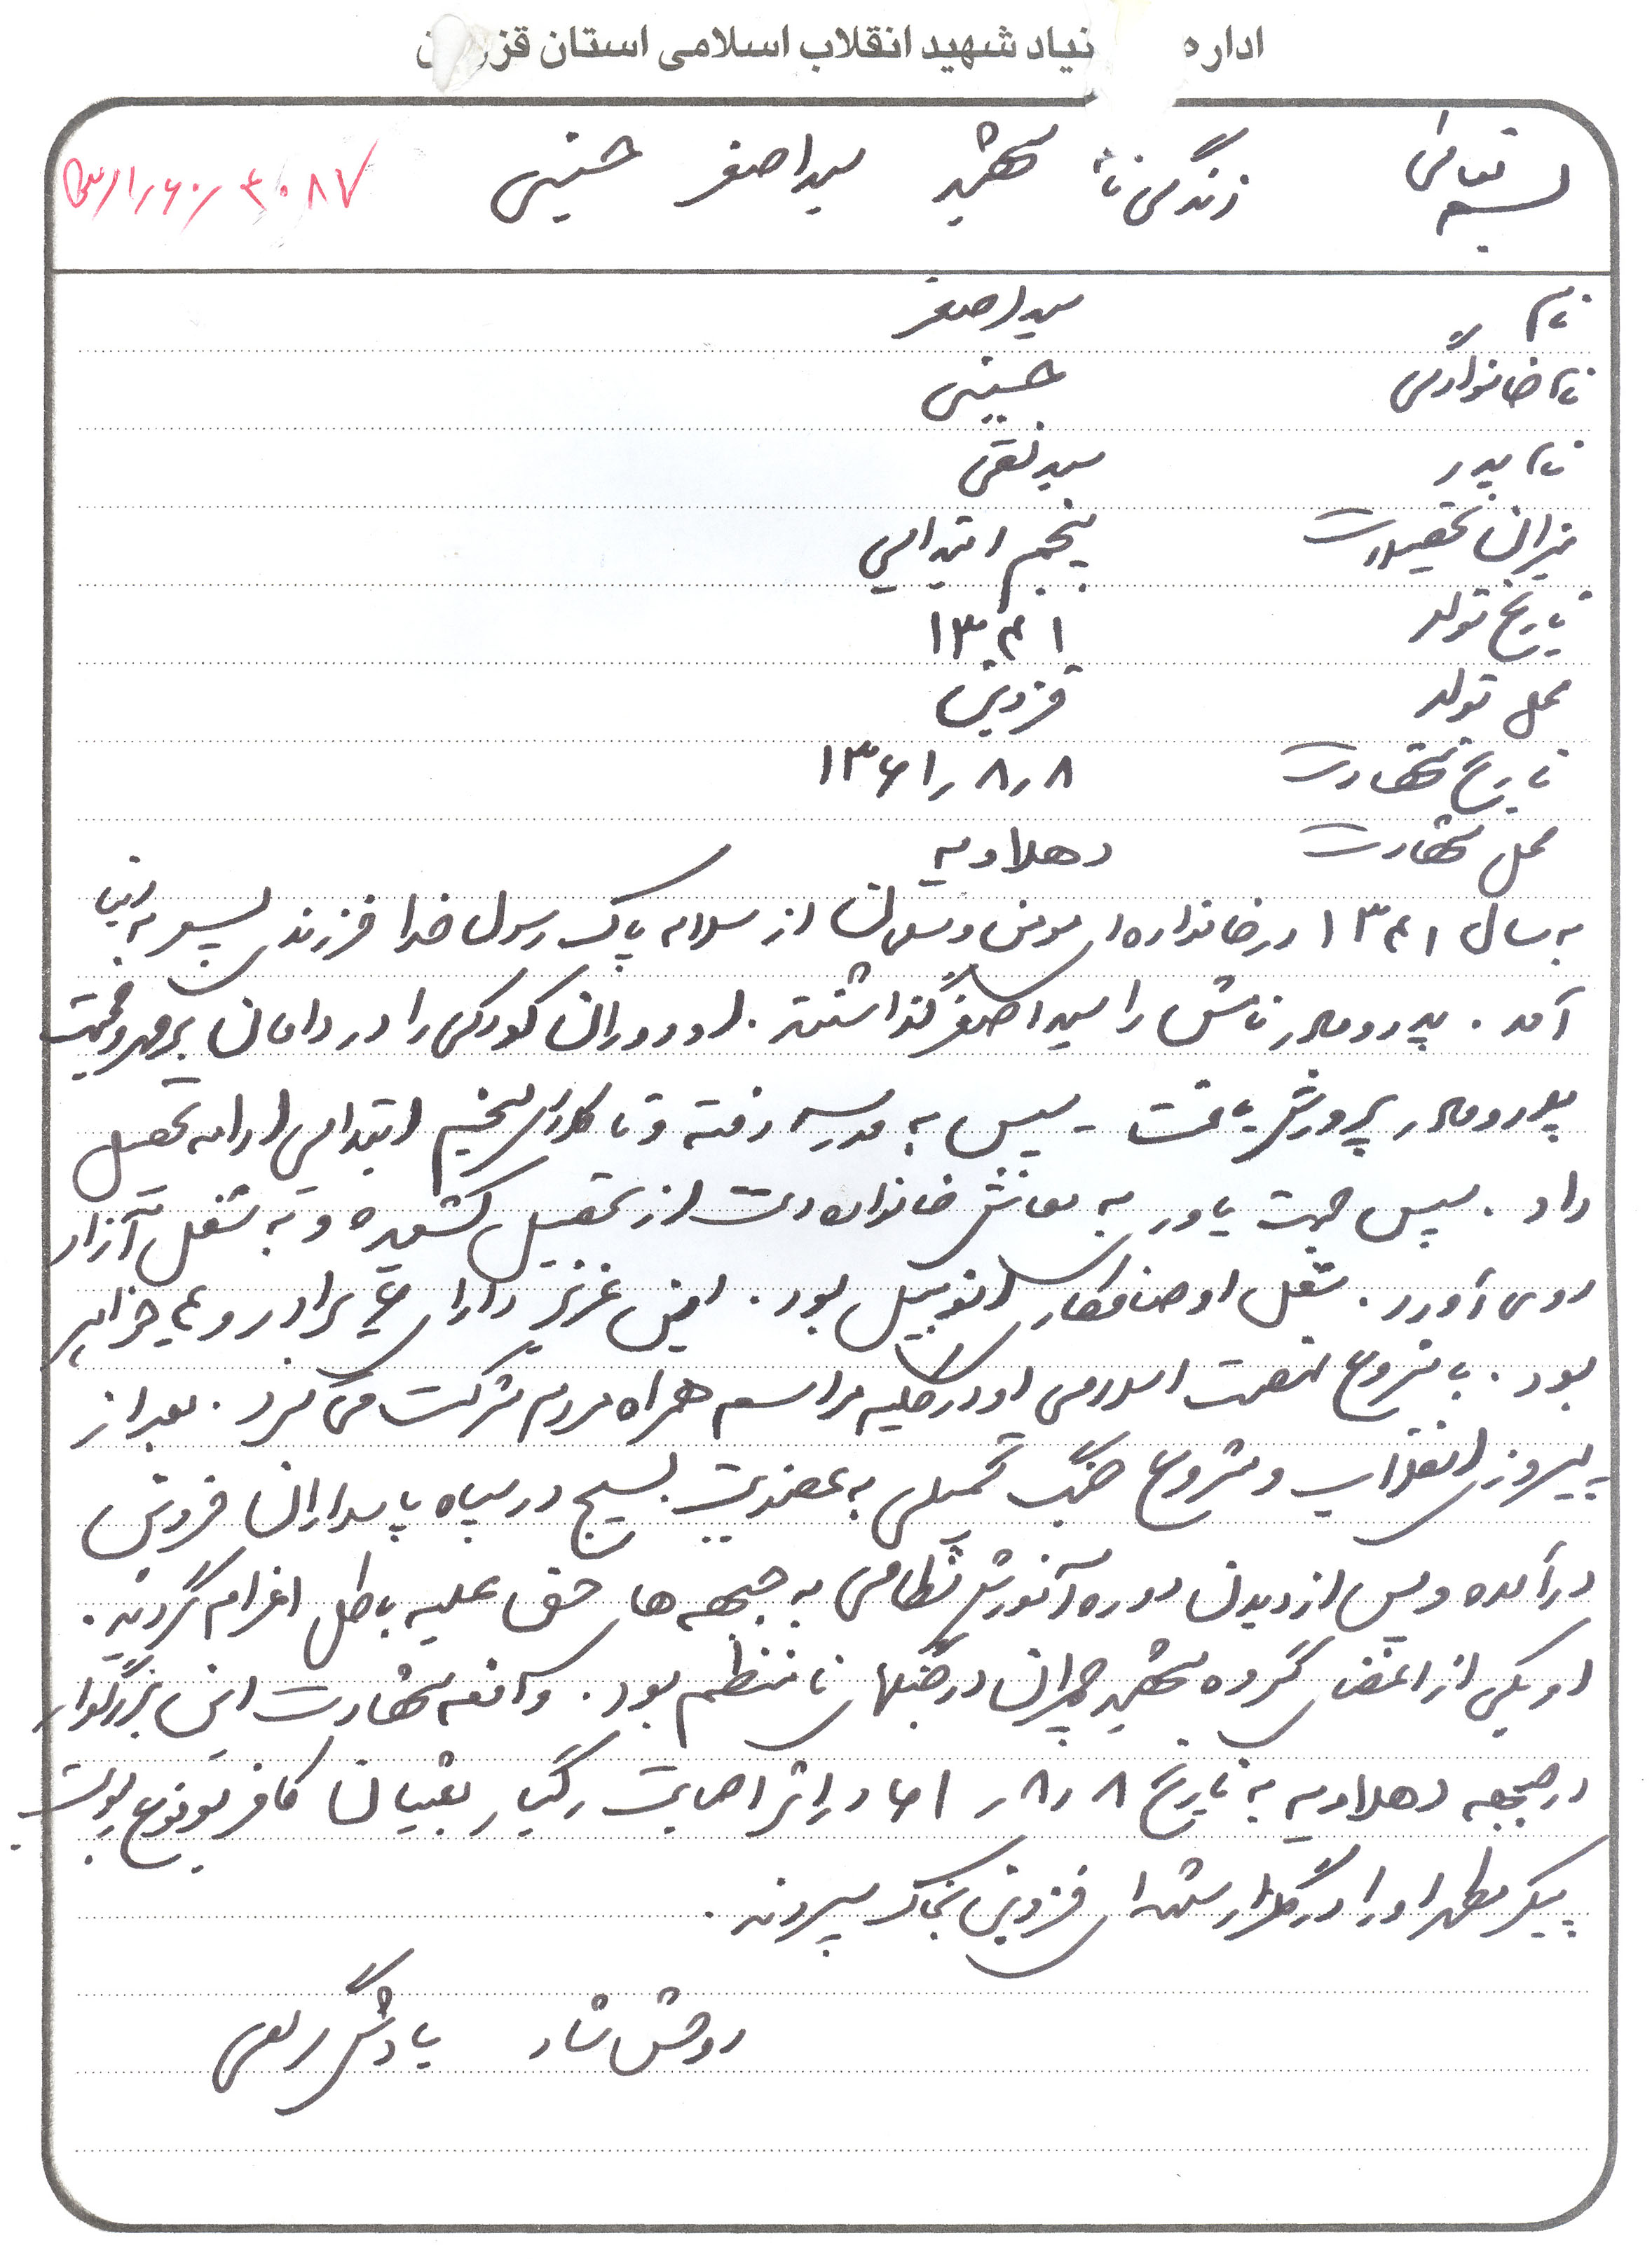 اداره نیاد شهید انقلاب اسلامی استان قزون
بسمه تعالی زندگی نامه شهید سید اصغر حسینی
نام سید اصغر
نام خانوادگی حسینی
نام پدر سید نقی
میزان تحصیلات پنجم ابتدایی
تاریخ تولد ۱۳۴۱
محل تولد قزوین
تاریخ شهادت ۸ر۸ر۱۳۶۱
محل شهادت دهلاویه
به سال ۱۳۴۱ در خانواده ای مومن و از سلاله پاک رسول خدا فرزندی پسر به دنیا
آمد . پدر و مادر نامش را سید اصغر گذاشتند . او دوران کودکی را در دامان پر مهر و محبت
پدر و مادر پرورش یافت - سپس به مدرسه رفته و تا کلاس پنجم ابتدایی ادامه تحصیل
داد . سپس جهت یاور به معاش خانواده دست از تحصیل کشیده و به شغل آزاد
روی آورد . شغل او صافکاری اتومبیل بود . این عزیز دارای برادر و خواهر
بود . با شروع نهضت اسلامی او در کلیه مراسم همراه مردم شرکت می کرد . بعد از
پیروزی انقلاب و شروع جنگ تحمیلی به عضویت بسیج در سپاه پاسداران قزوین
درآمده و پس از دیدن دوره آموزش نظامی به جبهه های حق علیه باطل اعزام گردید .
او یکی از اعضای گروه شهید چمران در جنگهای نامنظم بود . واقعه شهادت این بزرگوار
در جبهه دهلاویه به تاریخ ۸ر۸ر۶۱ در اثر اصابت رگبار بعثیان کافر بوقوع پیوست
پیکر مطهر او را در گلزار شهدای قزوین بخاک سپردند .
روحش شاد یادش گرامی